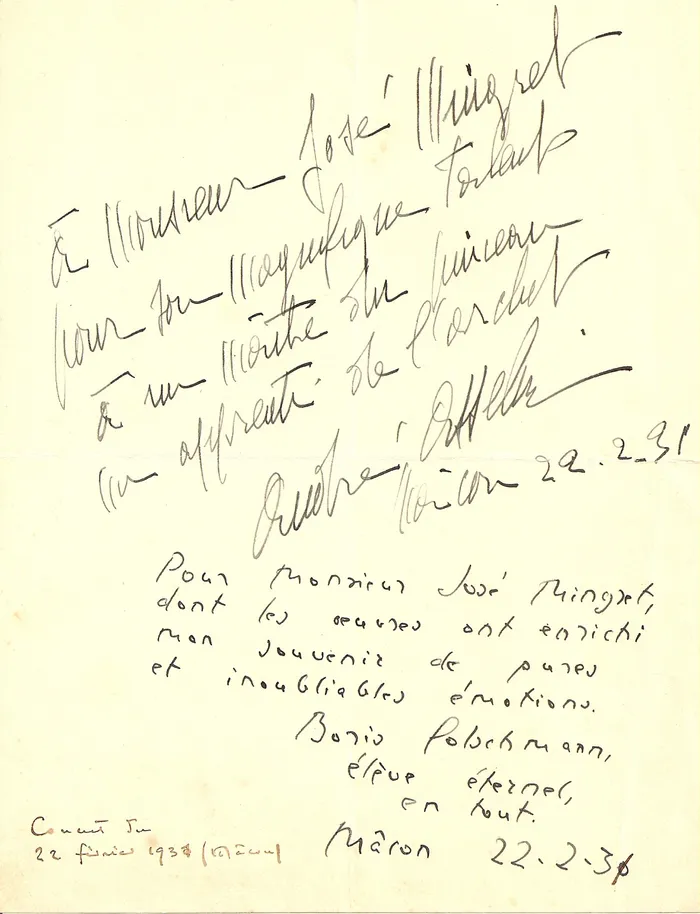 à Monsieur José Mingret
pour son magnifique talent
à un Maître du pinceau
un apprenti de l'archet
André Asselin
Mâcon 22.2.31
Pour Monsieur José Mingret,
dont les œuvres ont enrichi
mon souvenir de pures
et inoubliables émotions.
Boris Golschmann,
élève éternel,
en tout.
Mâcon 22-2-31
Concert du
22 février 1931 (Mâcon)